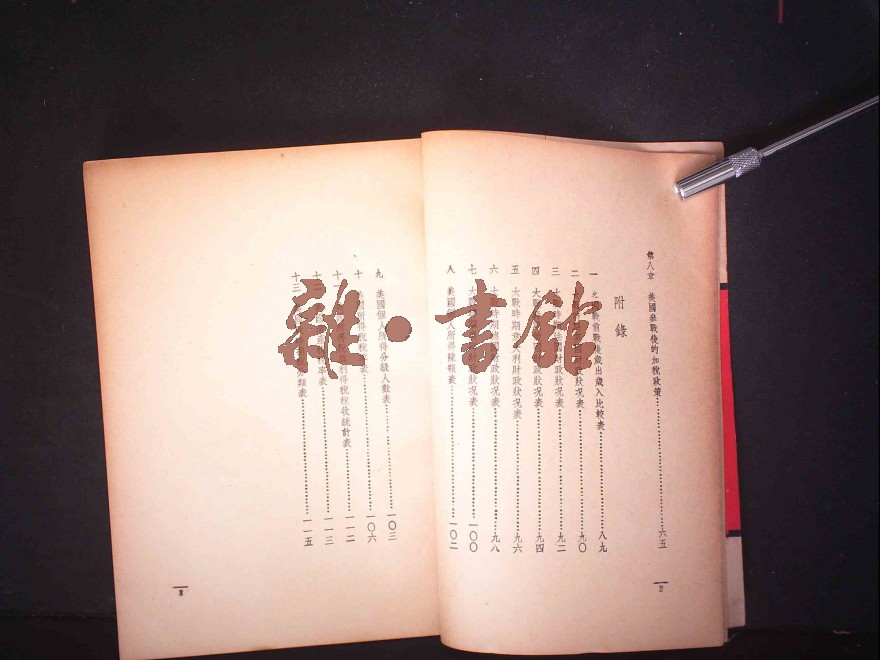 第八章 美國參戰後的加稅政策…………六五
附錄
一 戰前戰後歲出歲入比較表…………八九
二 財政狀況表…………九〇
三 大戰時期 財政狀況表…………九二
四 大戰 財政狀況表…………九四
五 大戰時期意大利財政狀況表…………九六
六 大 時期 財政狀況表…………九八
七 大戰 財政狀況表…………一〇〇
八 美國 人所得 報表…………一〇二
2
九 美國個人所得分級人數表…………一〇三
十 所得稅稅 表…………一〇六
十 利得稅稅收統計表…………一一二
十二 表…………一一三
十三 類表…………一一五
3
雜·書館